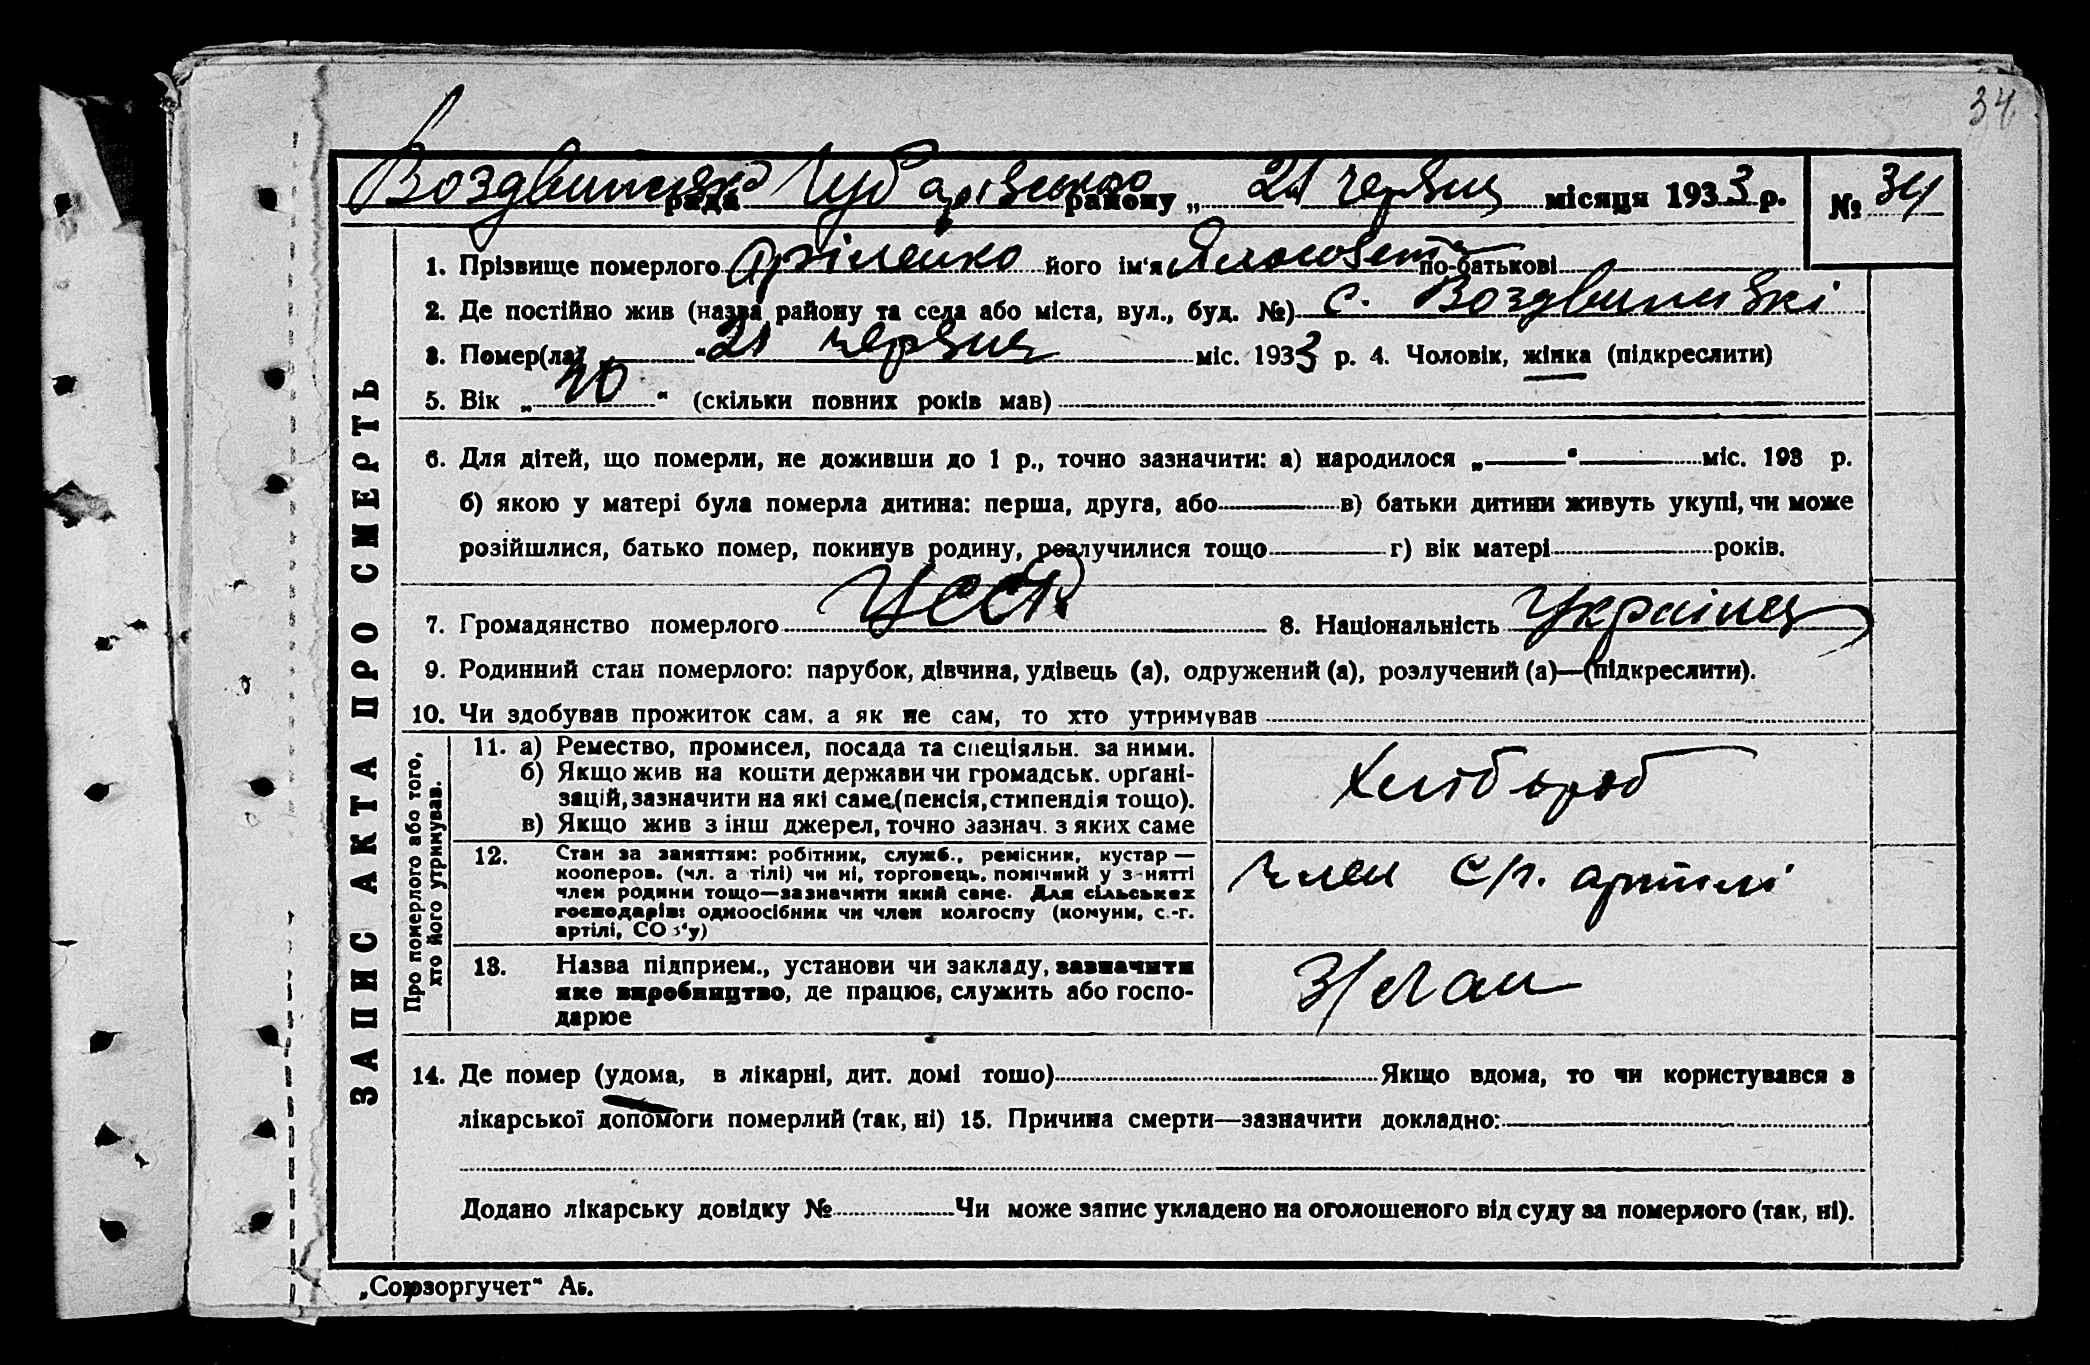 34
Воздвиженська рада Чубарівського району „ 21 червня місяця 1933 р. № 34
1. Прізвище померлого його ім'я по-батькові
2. Де постійно жив (назва району та села або міста, вул., буд. №) с. Воздвиженські
3. Помер(ла) „ 21 червня міс. 1933 р. 4. Чоловік, жінка (підкреслити)
5. Вік „ “ (скільки повних років мав)
6. Для дітей, що померли, не доживши до 1 р., точно зазначити: а) народилося „ “ міс. 193 р.
б) якою у матері була померла дитина: перша, друга, або в) батьки дитини живуть укупі, чи може
розійшлися, батько помер, покинув родину, розлучилися тощо г) вік матері років.
7. Громадянство померлого УССР 8. Національність Українец
9. Родинний стан померлого: парубок, дівчина, удівець (а), одружений (а), розлучений (а)—(підкреслити).
10. Чи здобував прожиток сам, а як не сам, то хто утримував
ЗАПИС АКТА ПРО СМЕРТЬ
Про померлого або того,
хто його утримував.
11. а) Ремество, промисел, посада та спеціяльн. за ними.
б) Якщо жив на кошти держави чи громадськ. органі-
зацій, зазначити на які саме (пенсія, стипендія тощо).
в) Якщо жив з інш джерел, точно зазнач. з яких саме
Хлібороб
12. Стан за заняттям: робітник, служб., ремісник, кустар —
кооперов. (чл. а тілі) чи ні, торговець, помічний у з-нятті
член родини тощо—зазначити який саме. Для сільських
господарів: одноосібник чи член колгоспу (комуни, с.-г.
артілі, СО з'у)
член с/г. артілі
13. Назва підприєм., установи чи закладу, зазначити
яке виробництво, де працює, служить або госпо-
дарює
14. Де помер (удома, в лікарні, дит. домі тошо) Якщо вдома, то чи користувався з
лікарської допомоги померлий (так, ні) 15. Причина смерти—зазначити докладно:
Додано лікарську довідку № Чи може запис укладено на оголошеного від суду за померлого (так, ні).
„Союзоргучет“ АБ.